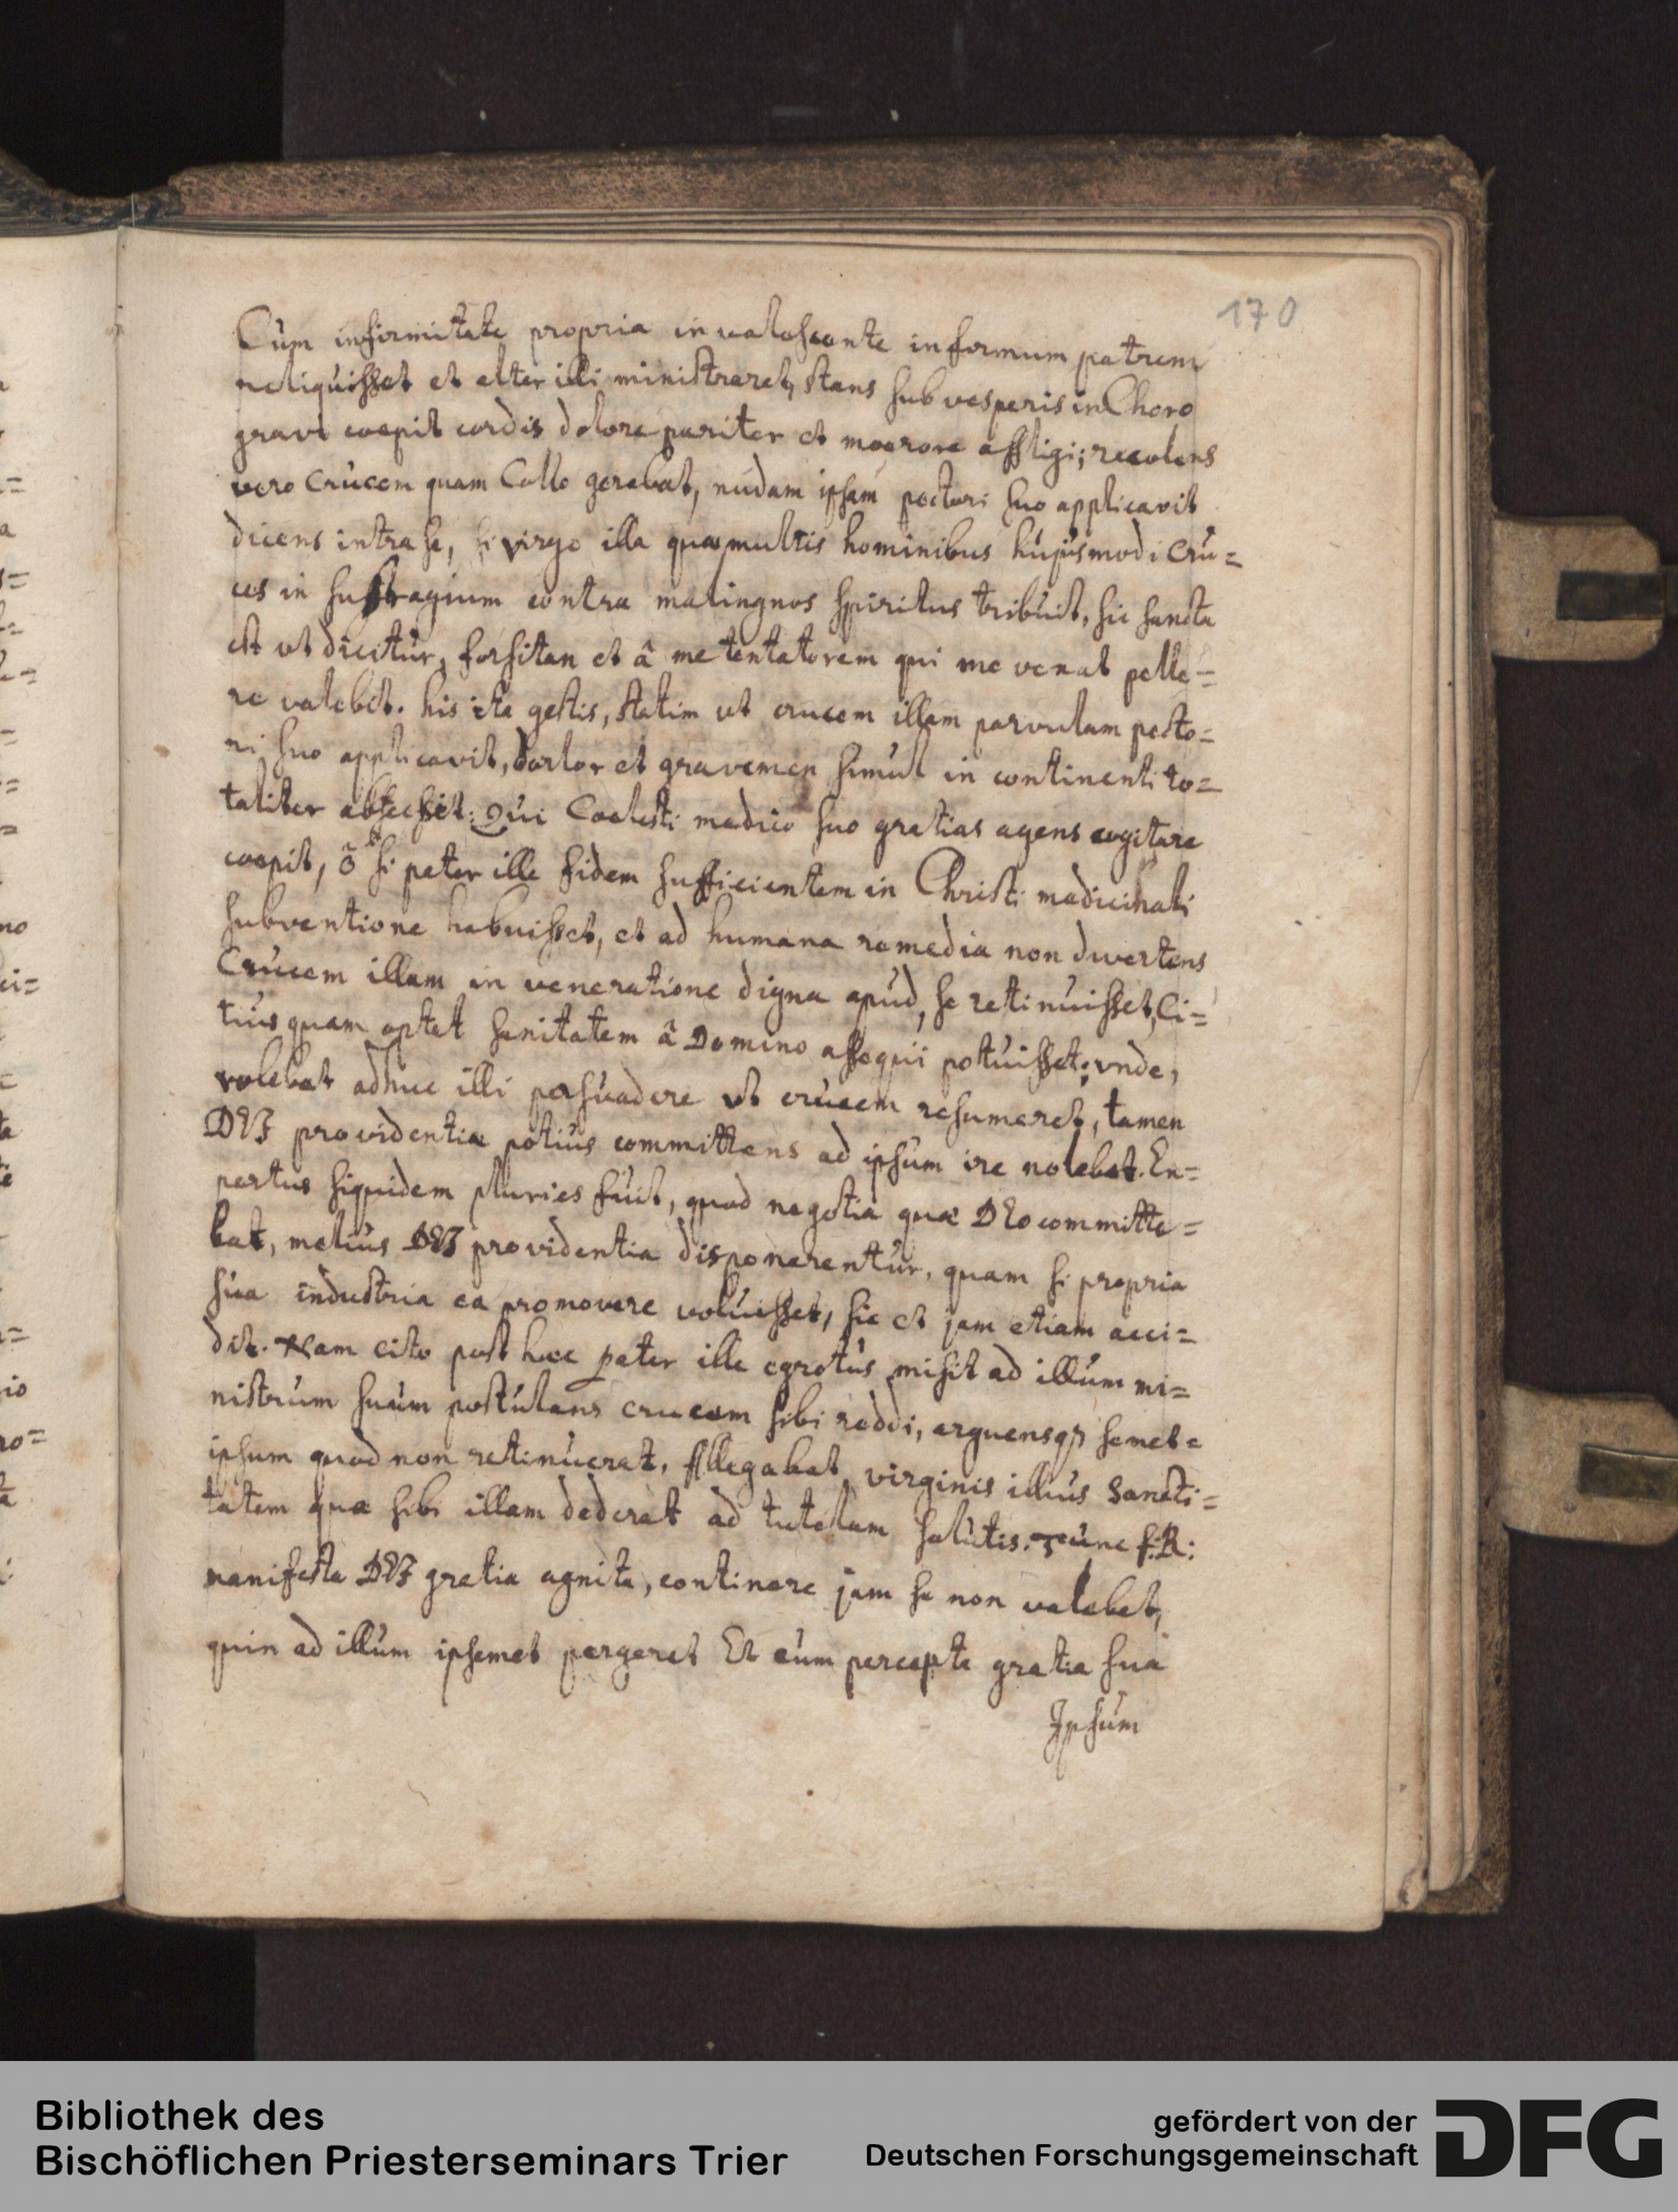 170
Cúm infirmitate propria invalescente infirmum patrem
reliquisset et alter illi ministraret, stans sub vesperis in Choro
gravi coepit cordis dolore pariter et moerore affligi; recolens
vero Crúcem quam Collo gerebat, nudam ipsam pectori suo applicavit
dicens intra se, si virgo illa quae multis hominibus hújúsmodi Crú=
ces in suffragium contra malingnos spiritus tribúit, sic sancta
est ut dicitúr, forsitan et â me tentatorem qui me venat pelle=
re valebit. his ita gestis, statim ut crucem illam parvulam pecto=
ri suo applicavit, dolor et gravamen simúl in continenti to=
taliter abscessit: Qui Coelesti medico suo gratias agens cogitare
coepit, ô si pater ille fidem sufficientem in Christi medicinali
subventione habuisset, et ad humana remedia non divertens
Crúcem illam in veneratione digna apud se retinuisset, Ci=
tiús quam optat sanitatem â Domino assequi potúisset; vnde,
volebat adhuc illi persúadere út crúcem resumeret, tamen
DEI providentiae potiús committens ad ipsum ire nolebat. Ex=
pertus siquidem pluries fúit, quod negotia quae DEo committe=
bat, melius DEI providentia disponerentúr, quam si propria
súa industria ea promovere volúisset, sic et jam etiam acci=
dit. Nam cito post haec pater ille egrotús misit ad illúm mi=
nistrúm suúm postúlans crucem sibi reddi, arguensq3 semet=
ipsum quod non retinúerat, Allegabat virginis illiús Sancti=
tatem quae sibi illam dederat ad tutelam salútis. Túnc f. R:
manifesta DEI gratia agnita, continere jam se non valebat,
quin ad illúm ipsemet pergeret Et cúm percepta gratia sua
Ipsúm
Bibliothek des
Bischöflichen Priesterseminars Trier
gefördert von der
Deutschen Forschungsgemeinschaft
DFG